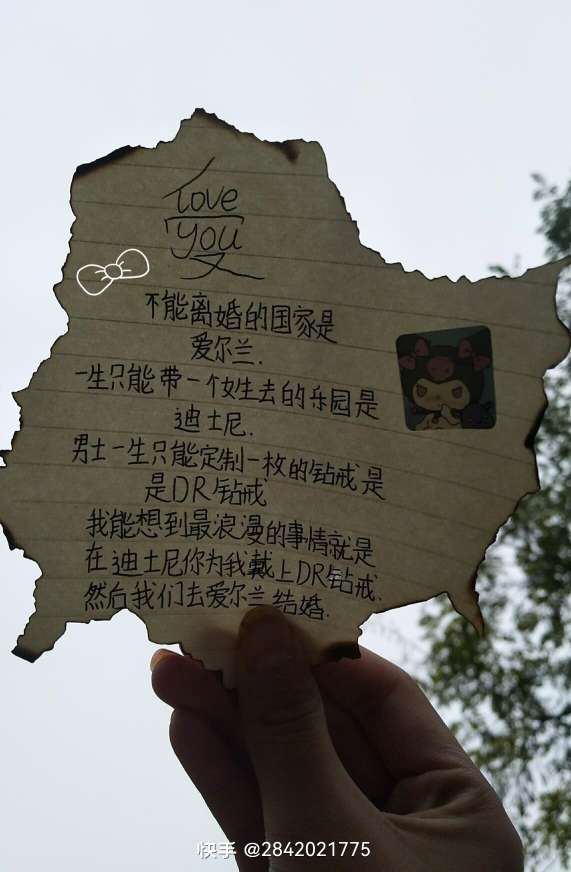 love
you
不能离婚的国家是
爱尔兰.
一生只能带一个女生去的乐园是
迪士尼.
男士一生只能定制一枚的钻戒是
是DR钻戒
我能想到最浪漫的事情就是
在迪士尼你为我戴上DR钻戒.
然后我们去爱尔兰结婚.
快手 @2842021775